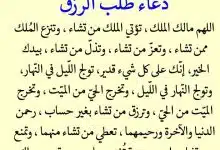 دعاء طلب الرزق
اللهم مالك الملك ، تؤتي الملك من تشاء ، وتنزع المُلك
ممن تشاء ، وتعزّ من تشاء ، وتذلّ من تشاء ، بيدك
الخير، إنّك على كل شيء قدير، تولج اللّيل في النّهار،
وتولج النّهار في اللّيل ، وتخرج الحيّ من الميّت ، وتخرج
الميّت من الحيّ ، وترزق من تشاء بغير حساب ، رحمن
الدنيا والآخرة ورحيمهما ، تعطي من تشاء منهما ، وتمنع